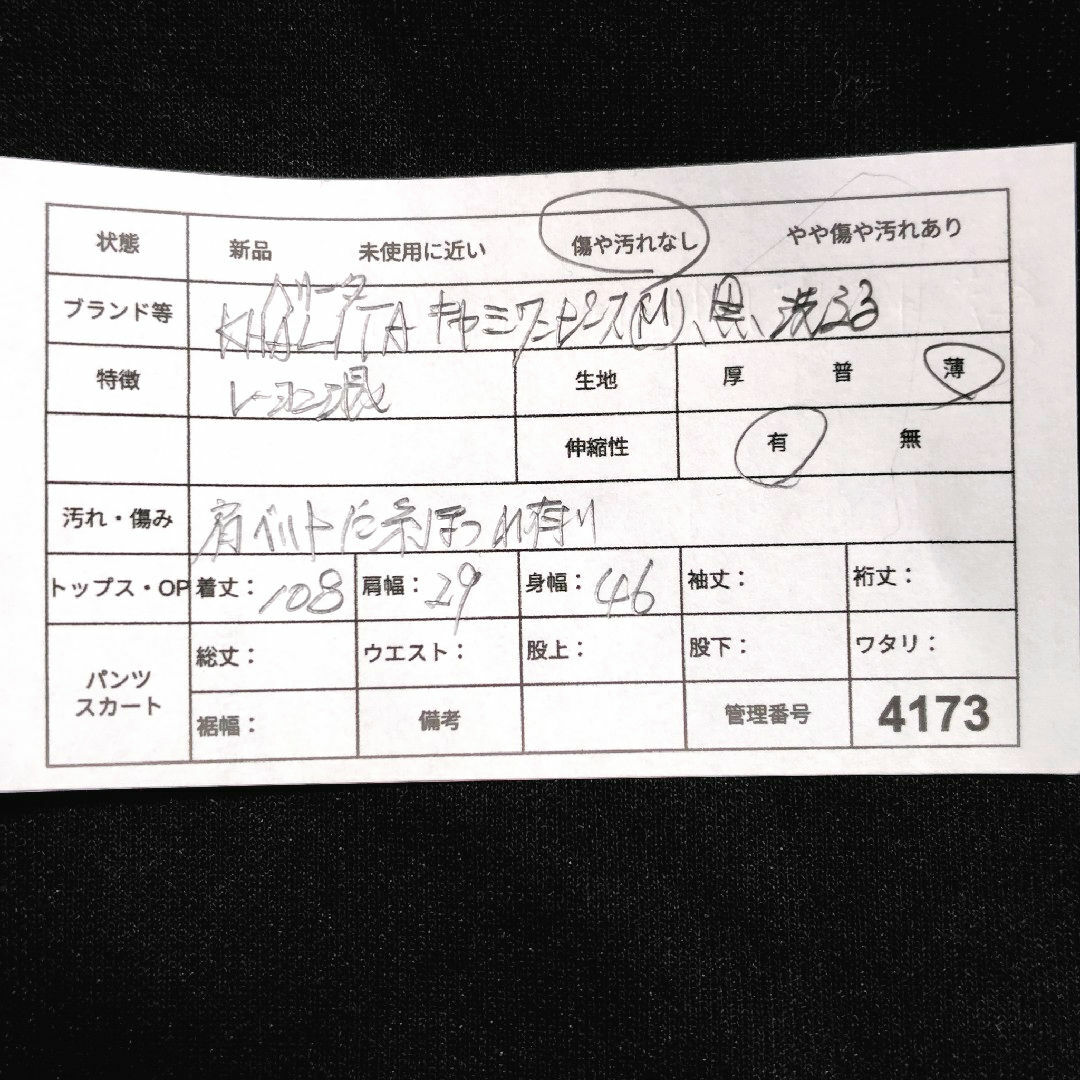 状態 新品 未使用に近い 傷や汚れなし やや傷や汚れあり
ブランド等 キャミワンピース(M)、黒、洗える
特徴 レーヨン混 生地 厚 普 薄
伸縮性 有 無
汚れ・傷み 肩ベルトに糸ほつれ有り
トップス・OP 着丈: 108 肩幅: 29 身幅: 46 袖丈: 裄丈:
パンツ スカート 総丈: ウエスト: 股上: 股下: ワタリ:
裾幅: 備考 管理番号 4173